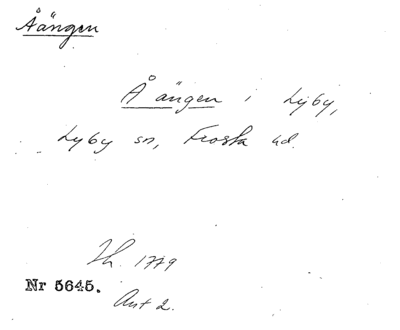 Åängen
Å ängen i Lyby,
Lyby sn, Frosta hd.
Lh. 1779
Nr 5645.
Akt 2.